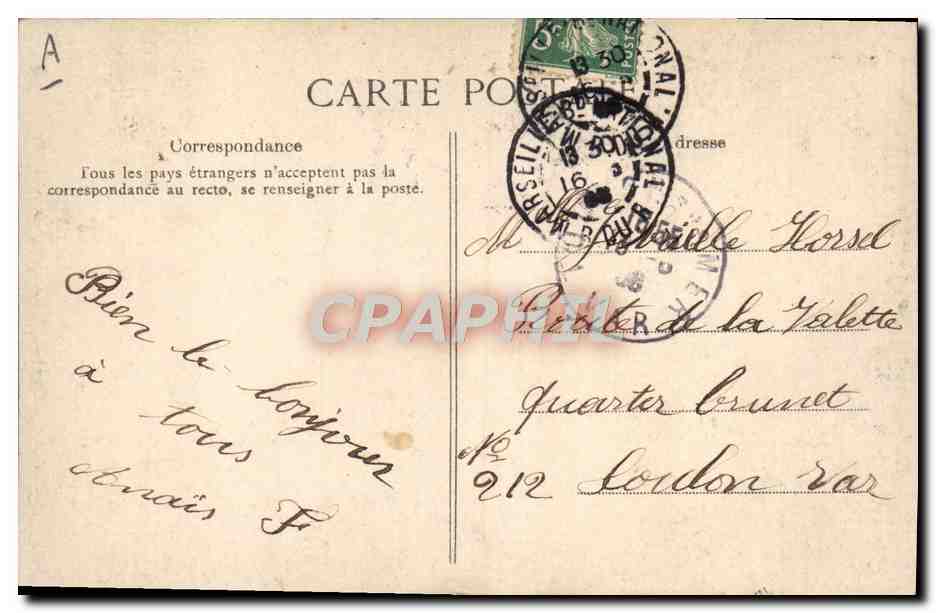 A
CARTE POSTALE
Correspondance
Tous les pays étrangers n'acceptent pas la
correspondance au recto, se renseigner à la poste.
dresse
Bien le bonjour
à tous
Anaïs F
Horsel
Route de la Valette
quartier brunet
No 212 Toulon Var
MARSEILLE
13 30
16
CPAPHIL